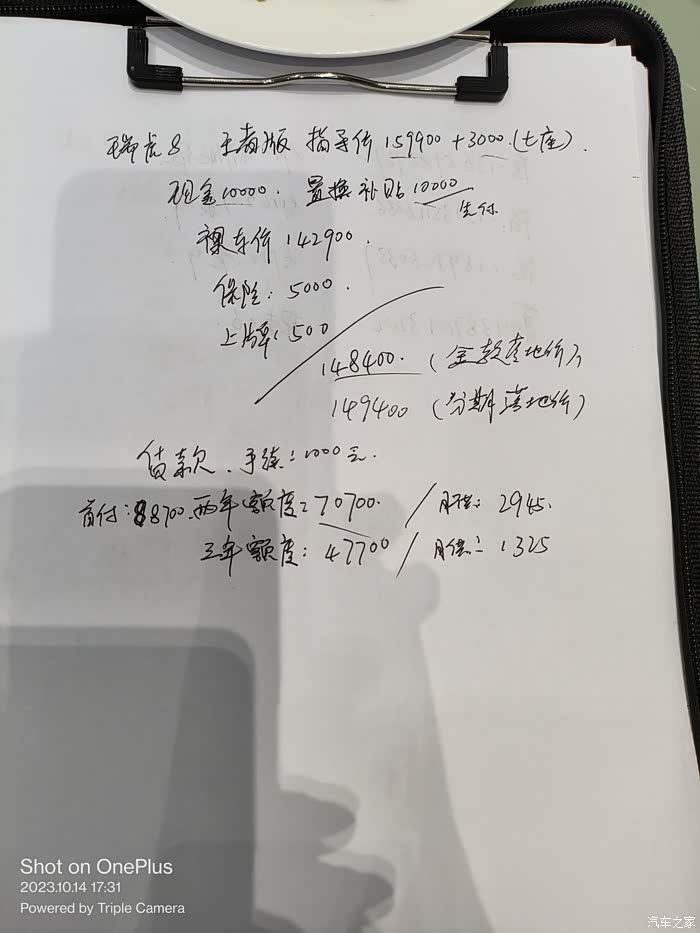 瑞虎8 王者版 指导价 159900 + 3000.(七座).
现金10000. 置换补贴10000 先付
裸车价 142900.
保险: 5000.
上牌: 500
148400. (全款落地价)
149400 (分期落地价)
贷款. 手续: 1000元.
首付: 88700. 两年额度: 70700. / 月供: 2945.
三年额度: 47700 / 月供: 1325
Shot on OnePlus
2023.10.14 17:31
Powered by Triple Camera
汽车之家